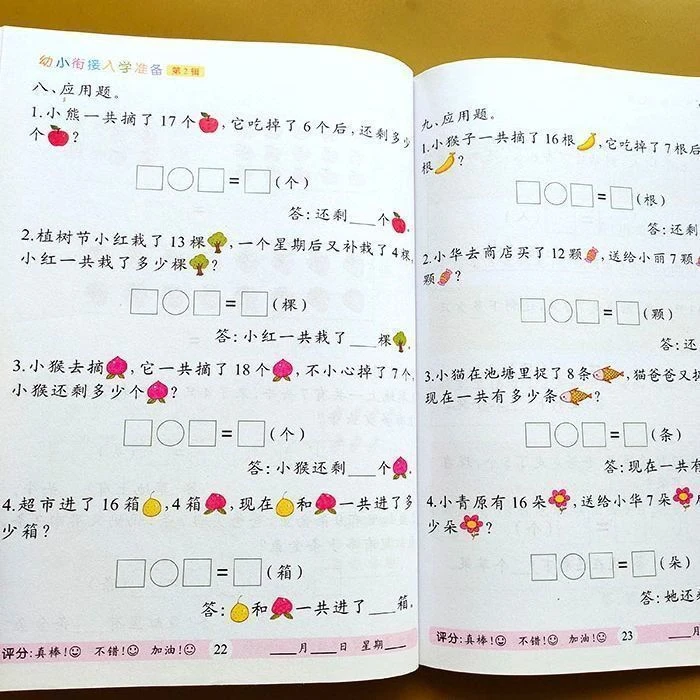 幼小衔接入学准备 第2辑
八、应用题。
1.小熊一共摘了17个,它吃掉了6个后,还剩多少
个?
=(个)
答:还剩___个。
2.植树节小红栽了13棵,一个星期后又补栽了4棵,
小红一共栽了多少棵?
=(棵)
答:小红一共栽了___棵。
3.小猴去摘,它一共摘了18个,不小心掉了7个,
小猴还剩多少个?
=(个)
答:小猴还剩___个。
4.超市进了16箱,4箱,现在和一共进了多
少箱?
=(箱)
答:和一共进了___箱。
评分:真棒! 不错! 加油! 22 ___月___日 星期___
九、应用题。
1.小猴子一共摘了16根,它吃掉了7根后
根?
=(根)
答:还剩
2.小华去商店买了12颗,送给小丽7颗
颗?
=(颗)
答:还
3.小猫在池塘里捉了8条,猫爸爸又
现在一共有多少条?
=(条)
答:现在一共有
4.小青原有16朵,送给小华7朵
少朵?
=(朵)
答:她还剩
评分:真棒! 不错! 加油! 23 ___月